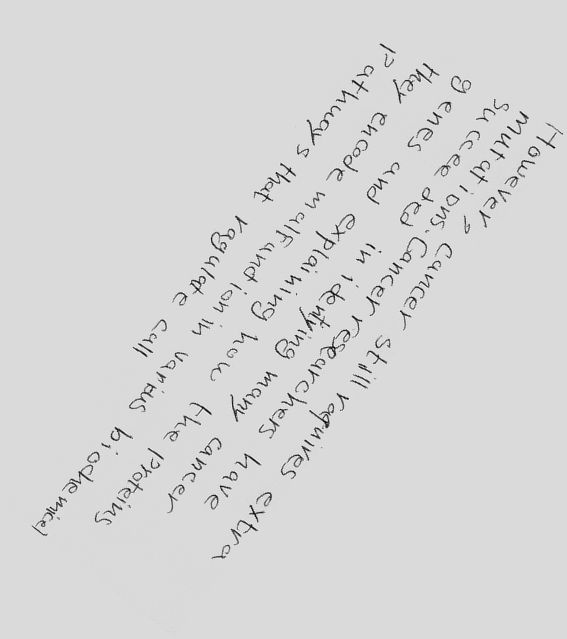 However, cancer still raquires extra
mutations. Cancer researchers have
succee ded in identying many cancer
genes and explaining how the proteins
they encode malfundion in varius biochemicel
pathways that ragulate call